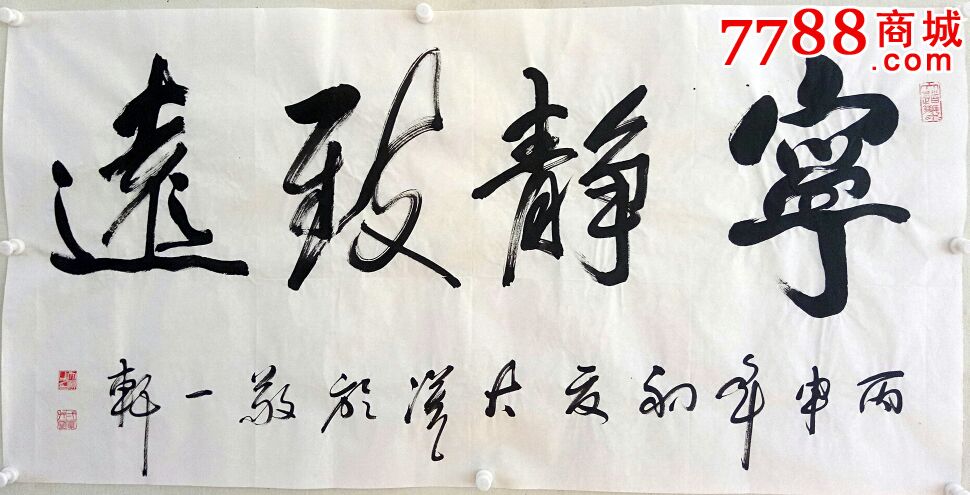 7788商城
.com
寧靜致遠
丙申年初夏大於敬一軒